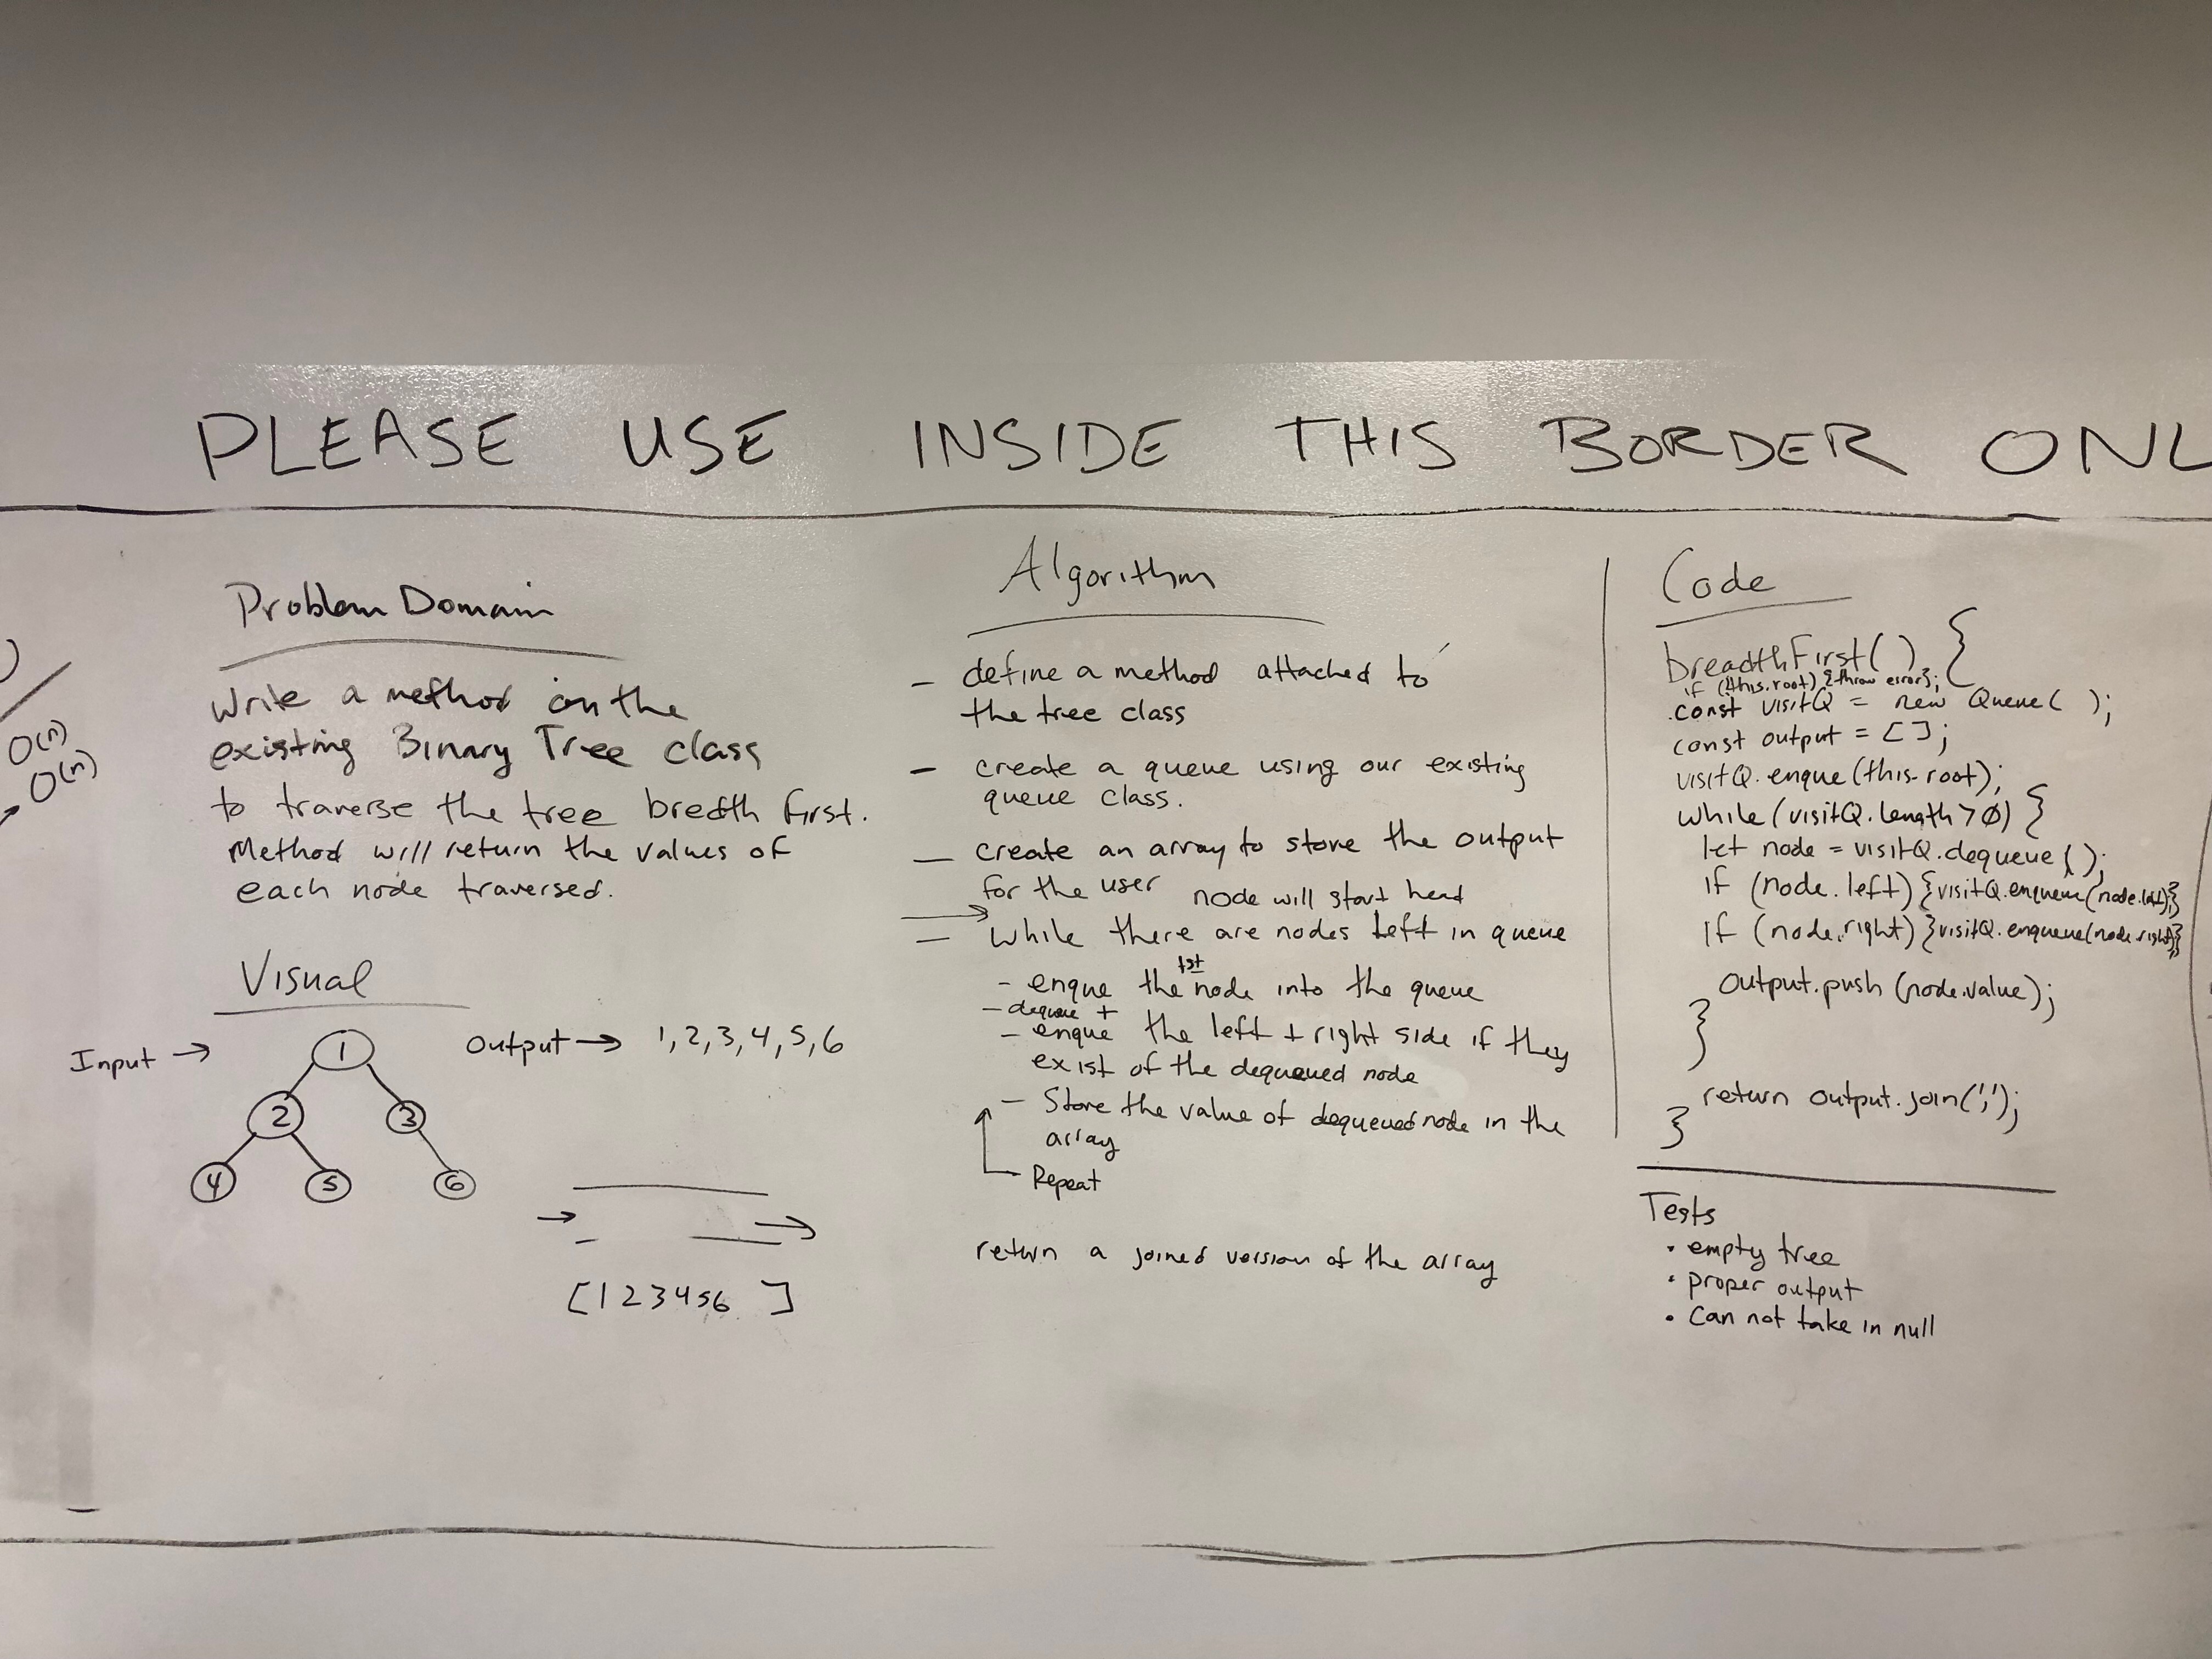 PLEASE USE INSIDE THIS BORDER ONL
O(n)
O(n)
Problem Domain
Write a method on the
existing Binary Tree class
to traverse the tree bredth first.
Method will return the values of
each node traversed.
Visual
Input → Output → 1,2,3,4,5,6
1
2 3
4 5 6
[1 2 3 4 5 6 ]
Algorithm
- define a method attached to
the tree class
- create a queue using our existing
queue class.
- create an array to store the output
for the user
node will start head
- while there are nodes left in queue
1st
- enque the node into the queue
- dequeue +
- enque the left + right side if they
exist of the dequeued node
- Store the value of dequeued node in the
array
Repeat
return a joined version of the array
Code
breadthFirst() {
if (!this.root) {throw error};
const visitQ = new Queue( );
const output = [];
visitQ.enque(this.root);
while(visitQ.length > 0) {
let node = visitQ.dequeue();
if (node.left) {visitQ.enqueue(node.left);}
if (node.right) {visitQ.enqueue(node.right);}
output.push(node.value);
}
return output.join(',');
}
Tests
• empty tree
• proper output
• Can not take in null